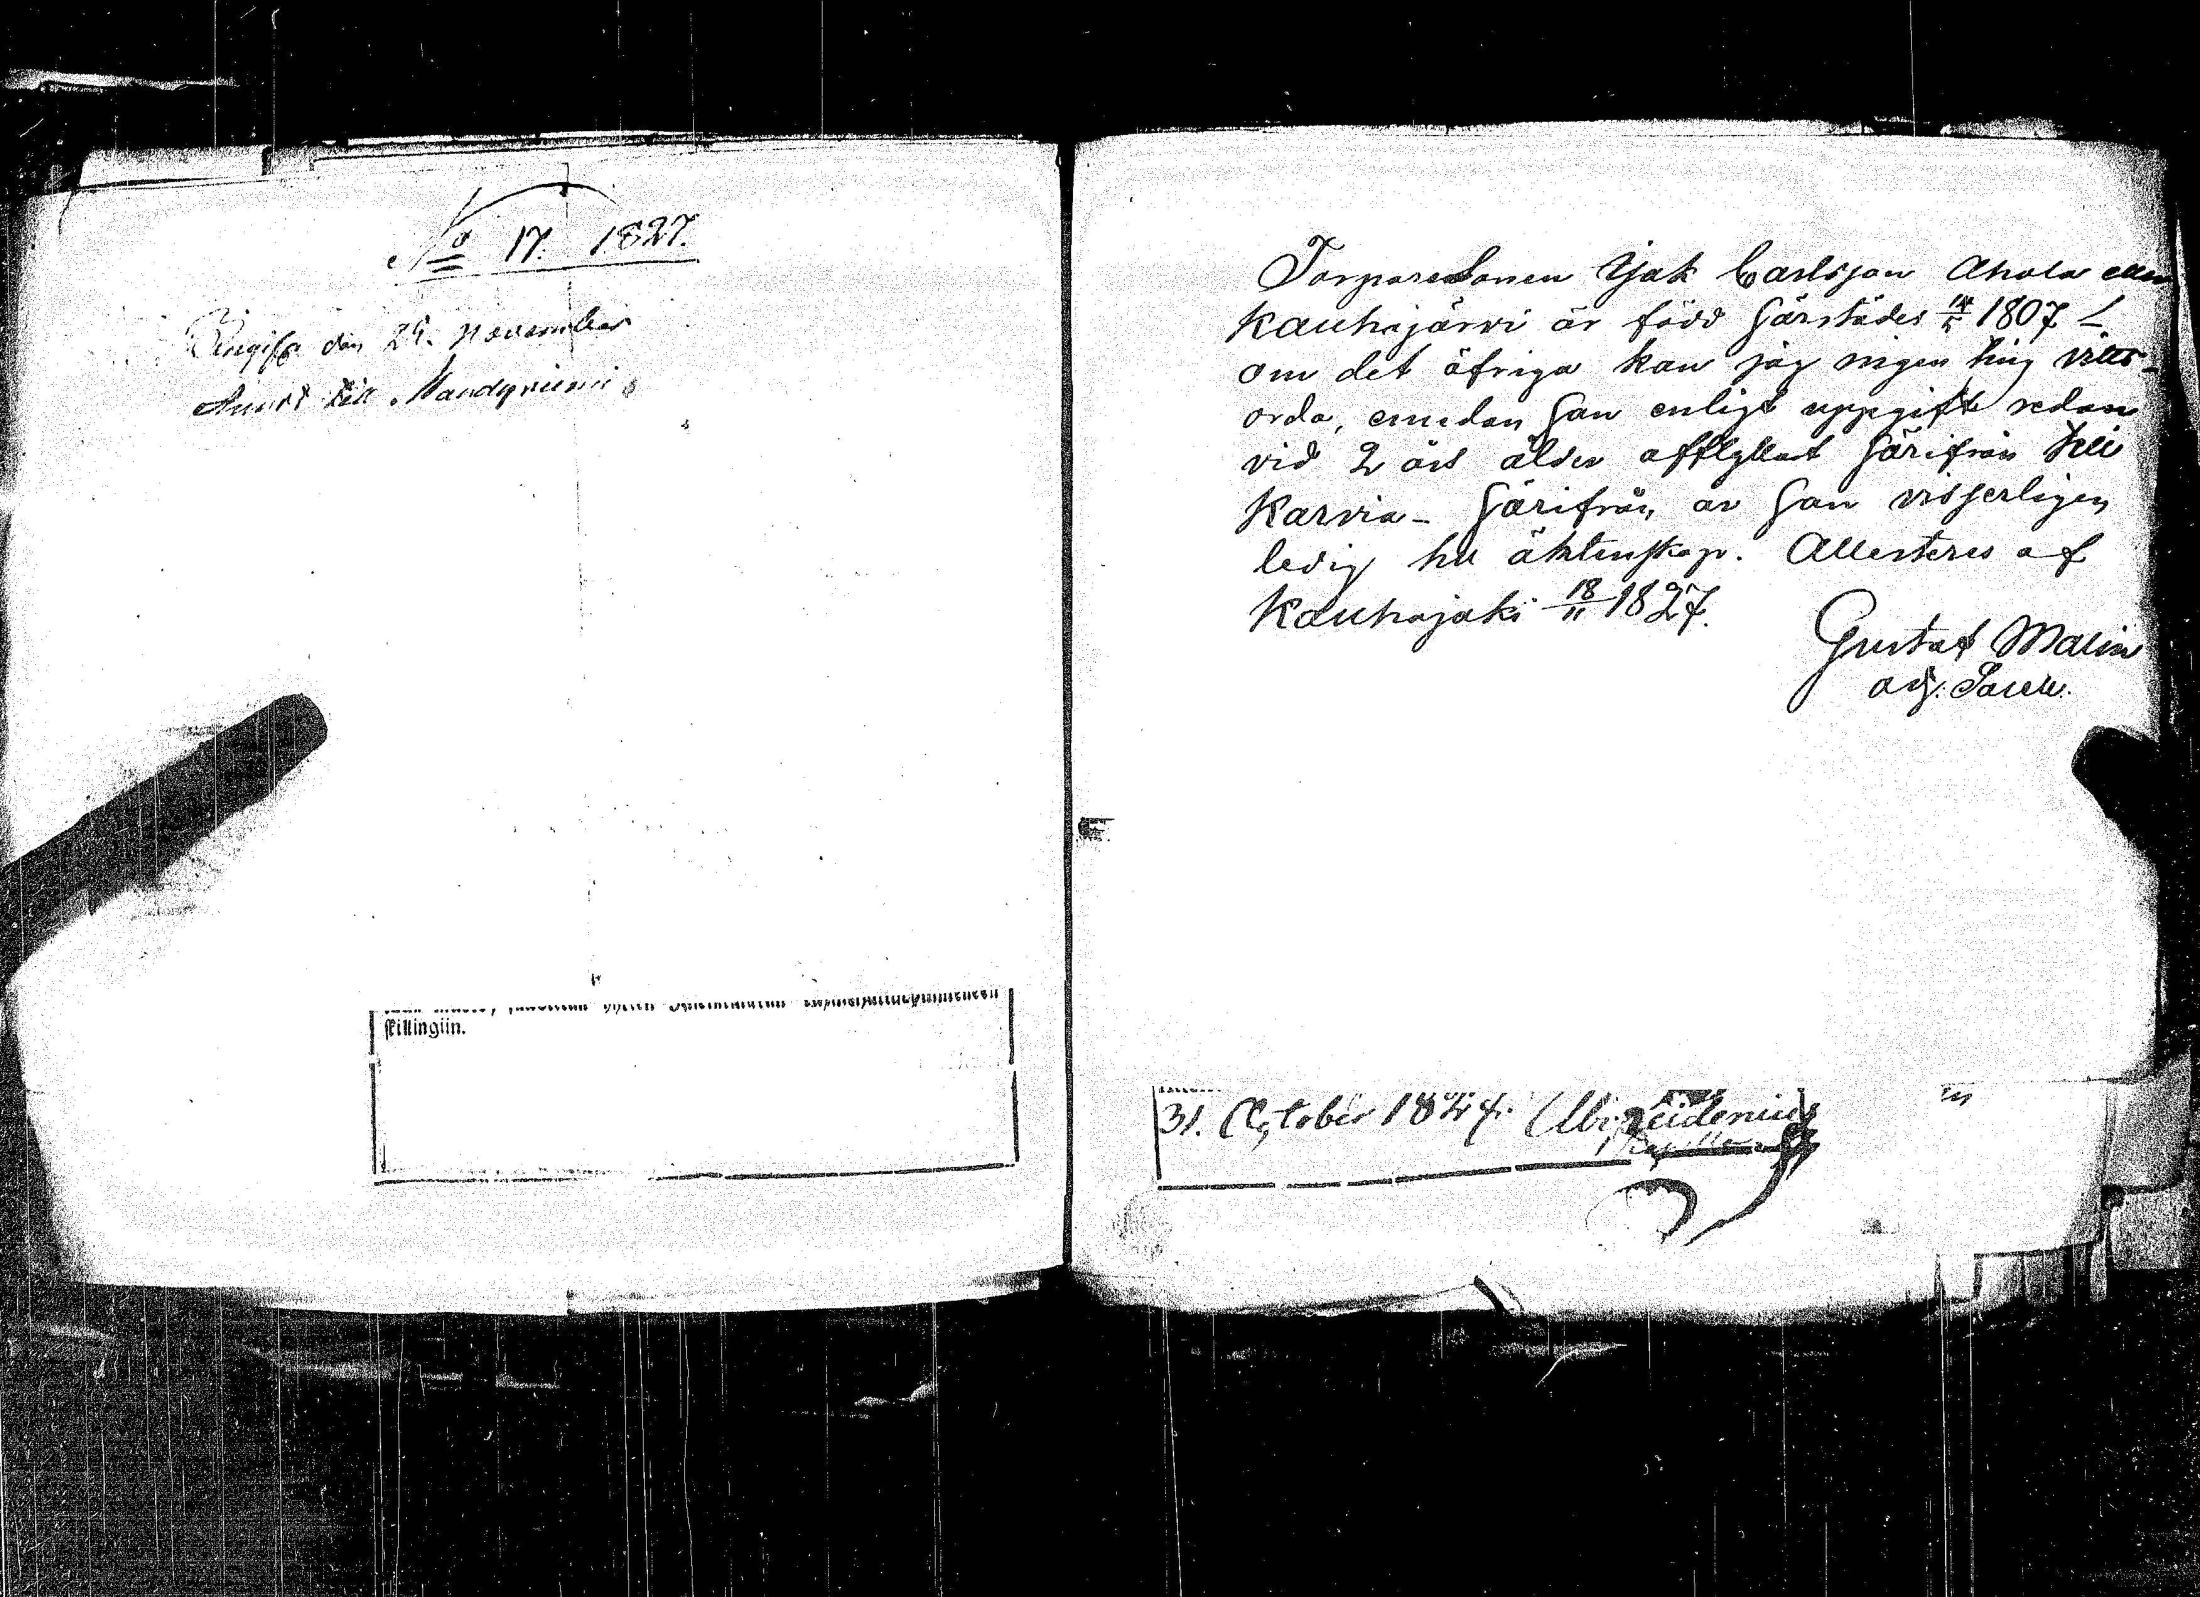 No 17. 1827.
den 29. November
till
skillingiin.
Torparesonen Isak Carlsson Ahola
Kauhajärvi är född härstädes 14/5 1807
om det öfriga kan jag ingen ting vitts-
orda, emedan han enligt uppgift redan
vid 2 års ålder afflyttat härifrån till
Karvia - härifrån är han visserligen
ledig till äktenskap. Attesteres af
Kauhajoki 18/11 1827.
Gustaf Malin
adj. Sacell.
31. October 1824.